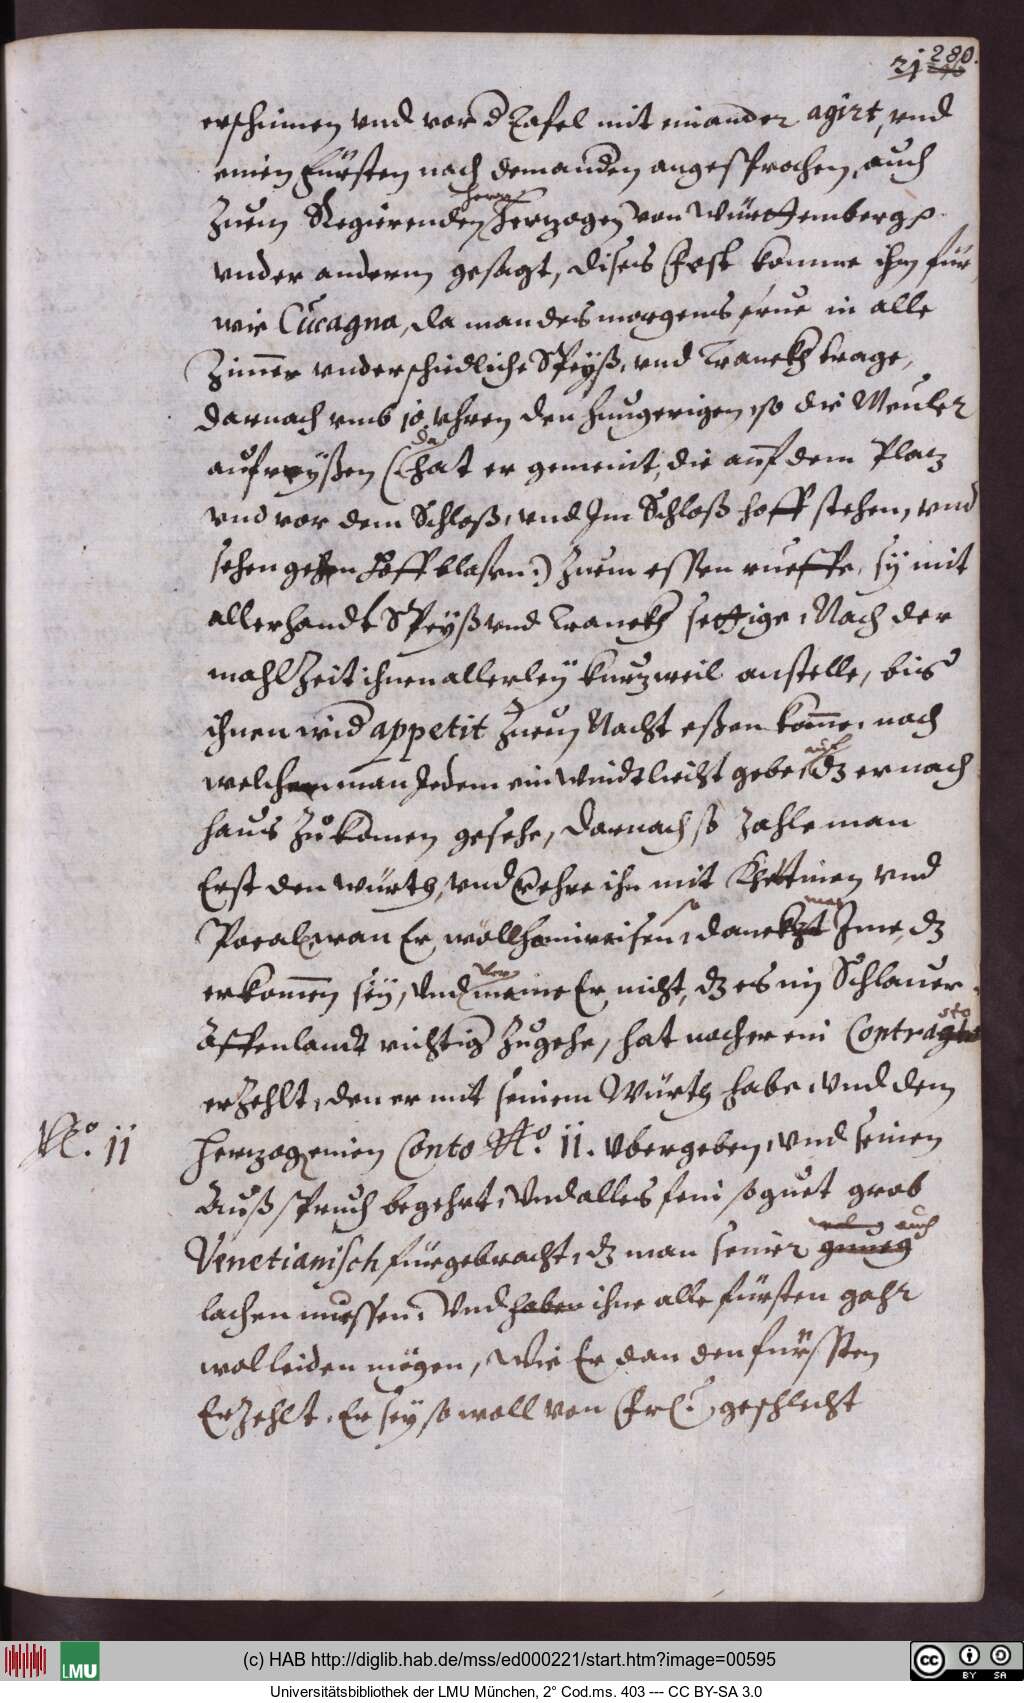 280.
21
erschinnen vnd vor d Tafel mit einander agirt, vnd
einen Fürsten nach dem anden angesprochen, auch
Zuem Regierenden herrn Hertzogen von Württemberg p.
vnder anderm gesagt, dises Fest komme ihm für
wie Cucagna, da man des morgens frue in alle
Zimmer vnderschidliche Speyß, vnd Tranckh trage,
darnach vmb 10 vhren den hungerigen, so die Meuler
aufreyßen (: da hat er gemeint, die auf dem Platz
vnd vor dem Schloß, vnd Im Schloß hoff stehen, vnd
sehen :) Zuem essen rueffe, sy mit
allerhandt Speyß vnd Tranckh settige, Nach der
mahlZeit ihnen allerley kurzweil anstelle, bis
ihnen wid appetit Zuem Nacht eßen komme, nach
welchem man Jedem ein windtliecht gebe, auf dz er nach
haus Zu komen gesehe, darnach so Zahle man
Erst den würth, vnd Verehre ihn mit Khettinen vnd
Pocal, wan Er wöll heimreisen, so danckt man Ime, dz
er kommen sey, Vnd meine Er nicht, dz es im Schlauer-
Affenlandt richtig Zugehe, hat nacher ein Contrasto
erZehlt, den er mit seinem Würth habe, Vnd dem
Herzog einen Conto No. 11. vbergeben, vnd seinen
No. 11
Außspruch begehrt, Vnd alles fein so guet grob
Venetianisch fürgebracht, dz man seiner genueg auch
lachen muessen, Vnd haben ihne alle fürsten gahr
wol leiden mögen, Wie Er dan den fürssten
ErZehlt, Er sey so woll von geschlecht
(c) HAB http://diglib.hab.de/mss/ed000221/start.htm?image=00595
LMU
cc BY SA
Universitätsbibliothek der LMU München, 2° Cod.ms. 403 --- CC BY-SA 3.0